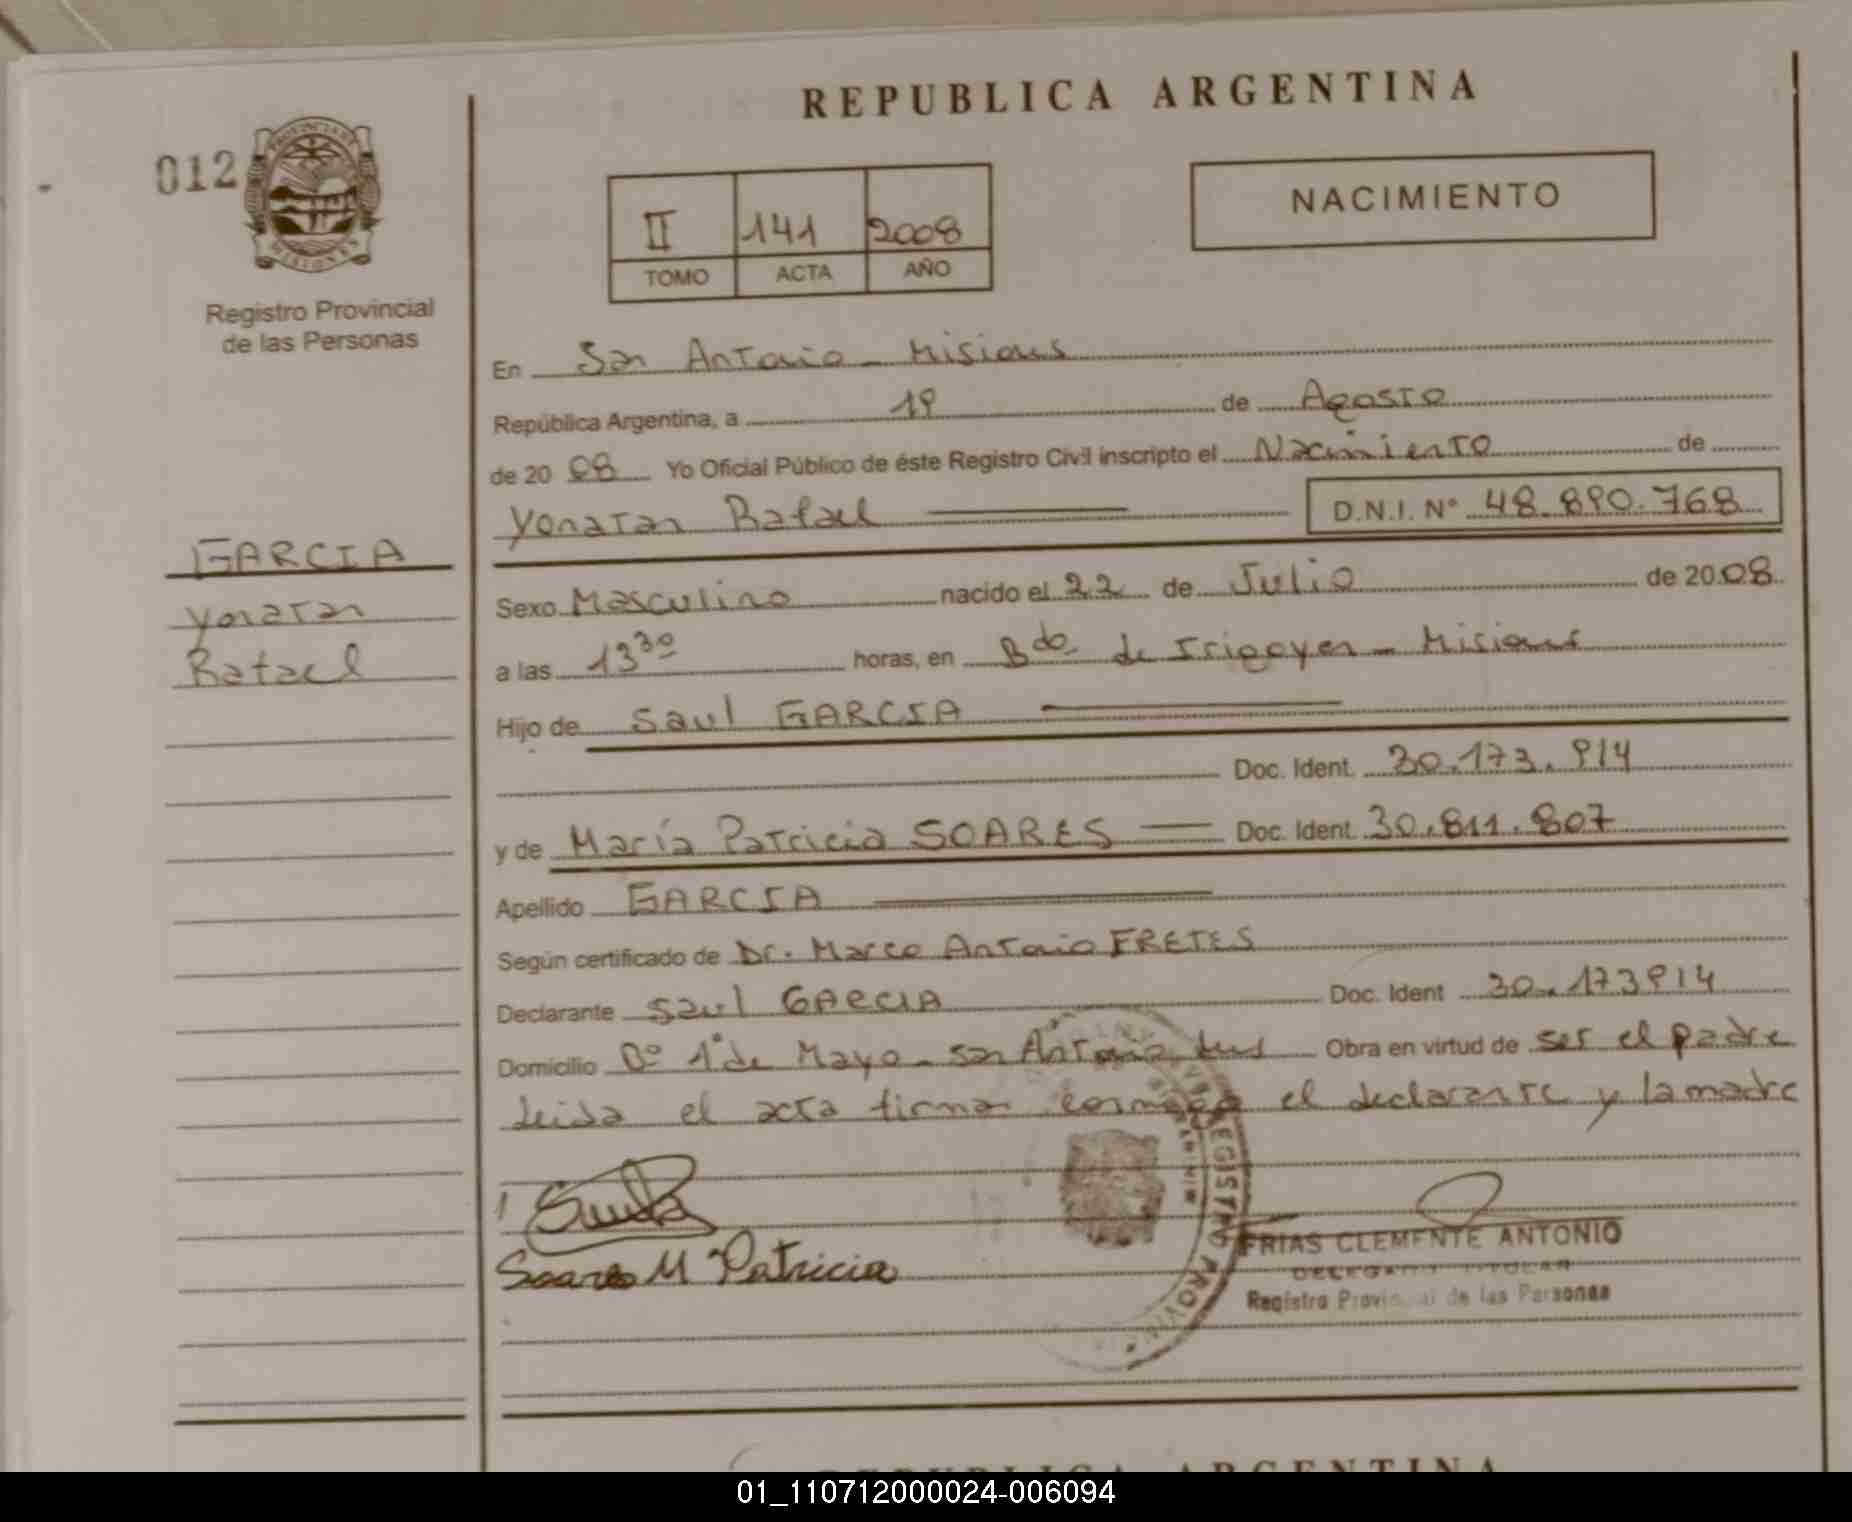 REPUBLICA ARGENTINA
012
PROVINCIA DE
MISIONES
Registro Provincial
de las Personas
II 141 2008
TOMO ACTA AÑO
NACIMIENTO
En San Antonio - Misiones
República Argentina, a 1º de Agosto
de 2008 Yo Oficial Público de éste Registro Civil inscripto el Nacimiento de
Yonatan Rafael D.N.I. Nº 48.890.768
GARCIA
Yonatan
Rafael
Sexo Masculino nacido el 22 de Julio de 2008
a las 13 30 horas, en Bdo. de Irigoyen - Misiones
Hijo de Saul GARCIA
Doc. Ident. 30.173.914
y de María Patricia SOARES Doc. Ident. 30.811.807
Apellido GARCIA
Según certificado de Dr. Marco Antonio FRETES
Declarante Saul GARCIA Doc. Ident 30.173914
Domicilio Bº 1º de Mayo - San Antonio Obra en virtud de ser el padre
Leida el acta firman conmigo el declarante y la madre
Soares M Patricia
REGISTRO PROVIN
FRIAS CLEMENTE ANTONIO
DELEGADO TITULAR
Registro Provincial de las Personas
REPUBLICA ARGENTINA
01_110712000024-006094